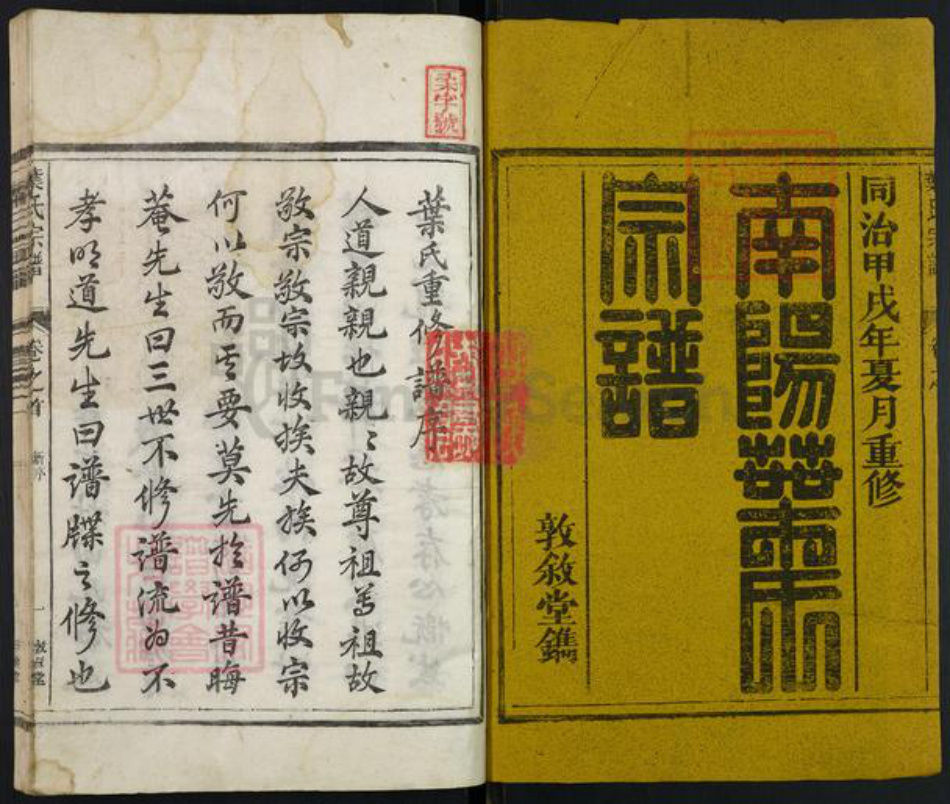 同治甲戌年夏月重修
南陽葉氏
宗譜
敦敘堂鐫
柔字號
葉氏重修譜序
人道親親也親〻故尊祖尊祖故
敬宗敬宗故收族夫族何以收宗
何以敬而其要莫先於譜昔晦
菴先生曰三世不修譜流為不
孝明道先生曰譜牒之修也
葉氏宗譜
卷之首